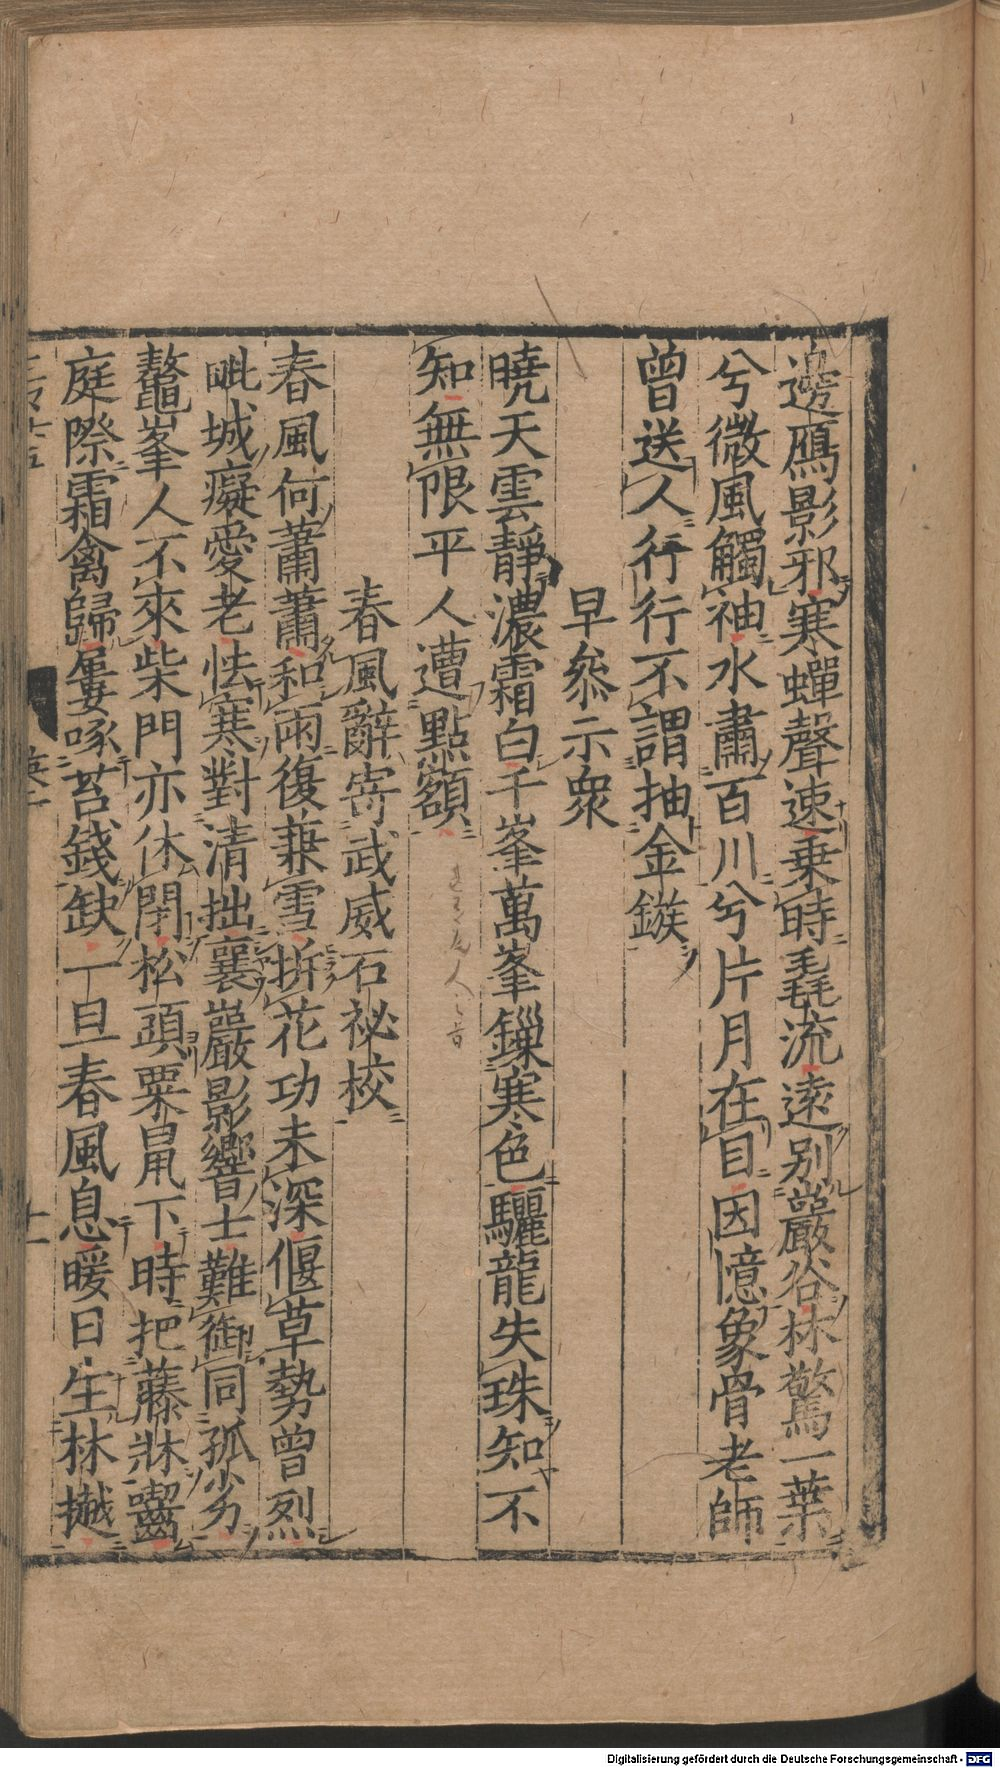 邊鴈影邪寒蟬聲速乗時毳流遠別巖谷林驚一葉
兮微風觸袖水肅百川兮片月在目因憶象骨老師
曾送人行行不謂抽金鏃
早叅示衆
曉天雲靜濃霜白千峯萬峯鏁寒色驪龍失珠知不
知無限平人遭點額
春風辭寄武威石祕校
春風何蕭蕭和雨復兼雪拆花功未深偃草勢曾烈
毗城癡愛老怯寒對清拙襄巖影響士難御同孤劣
鼇峯人不來柴門亦休閉松頭粟鼠下時把藤牀齧
庭際霜禽歸屢啄苔錢缺一旦春風息暖日生林樾
Digitalisierung gefördert durch die Deutsche Forschungsgemeinschaft - DFG